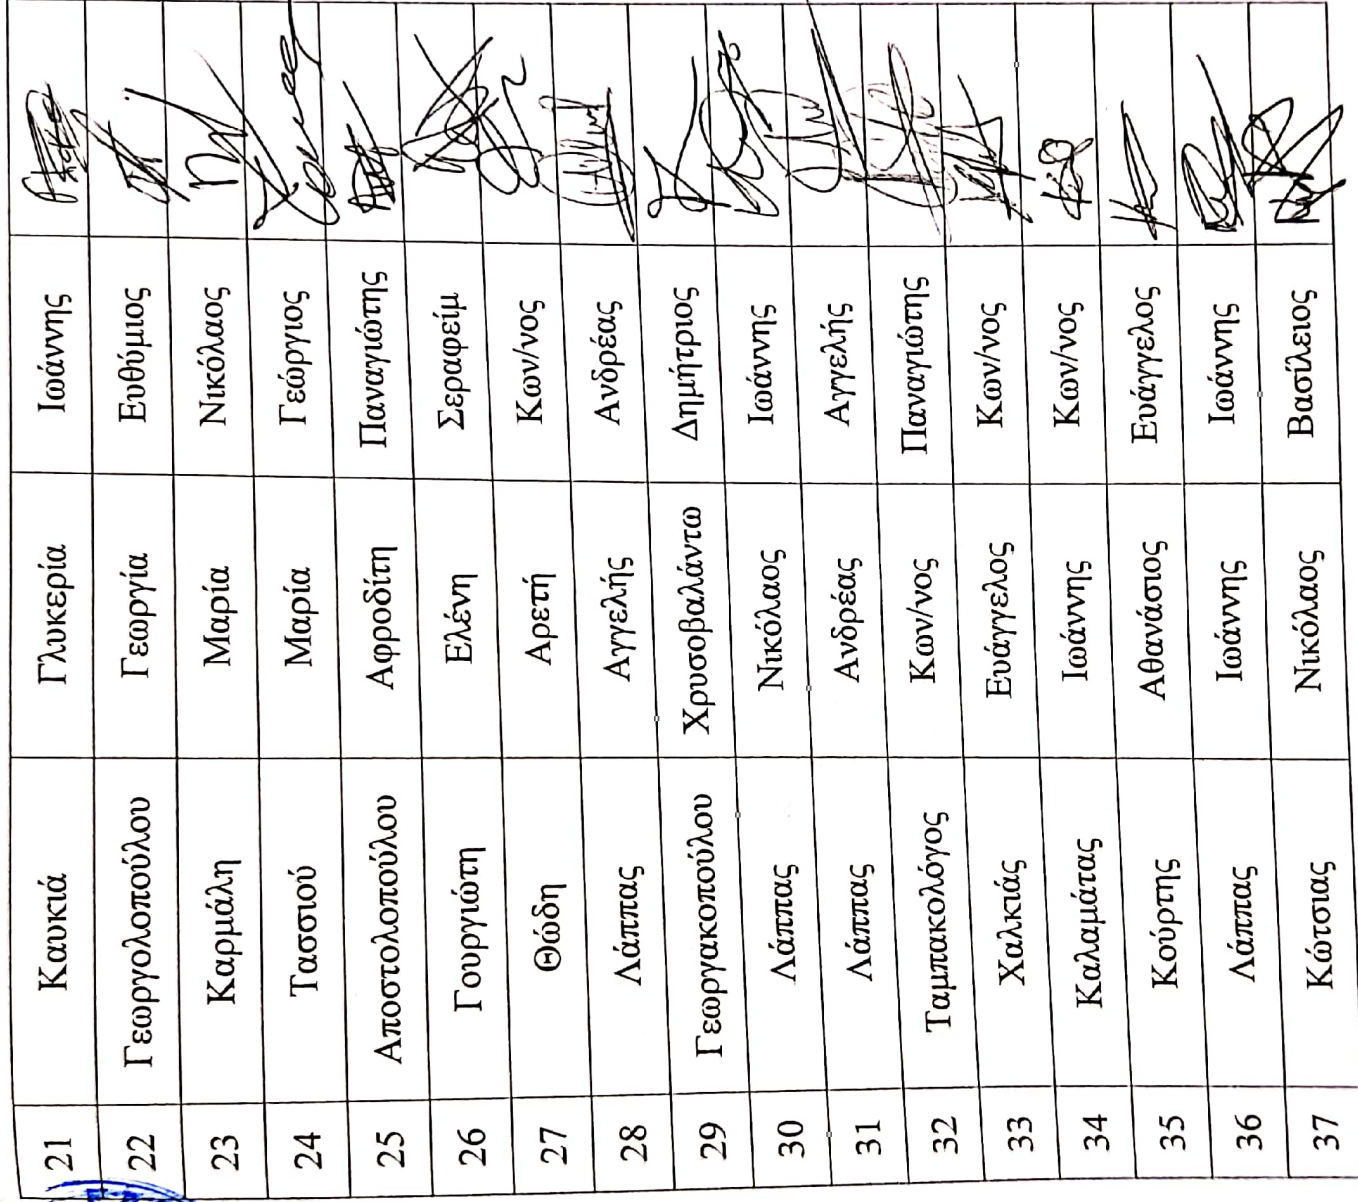 21 Καυκιά Γλυκερία Ιωάννης
22 Γεωργολοπούλου Γεωργία Ευθύμιος
23 Καρμάλη Μαρία Νικόλαος
24 Τασσιού Μαρία Γεώργιος
25 Αποστολοπούλου Αφροδίτη Παναγιώτης
26 Γουργιώτη Ελένη Σεραφείμ
27 Θώδη Αρετή Κων/νος
28 Λάππας Αγγελής Ανδρέας
29 Γεωργακοπούλου Χρυσοβαλάντω Δημήτριος
30 Λάππας Νικόλαος Ιωάννης
31 Λάππας Ανδρέας Αγγελής
32 Ταμπακολόγος Κων/νος Παναγιώτης
33 Χαλκιάς Ευάγγελος Κων/νος
34 Καλαμάτας Ιωάννης Κων/νος
35 Κούρτης Αθανάσιος Ευάγγελος
36 Λάππας Ιωάννης Ιωάννης
37 Κώτσιας Νικόλαος Βασίλειος